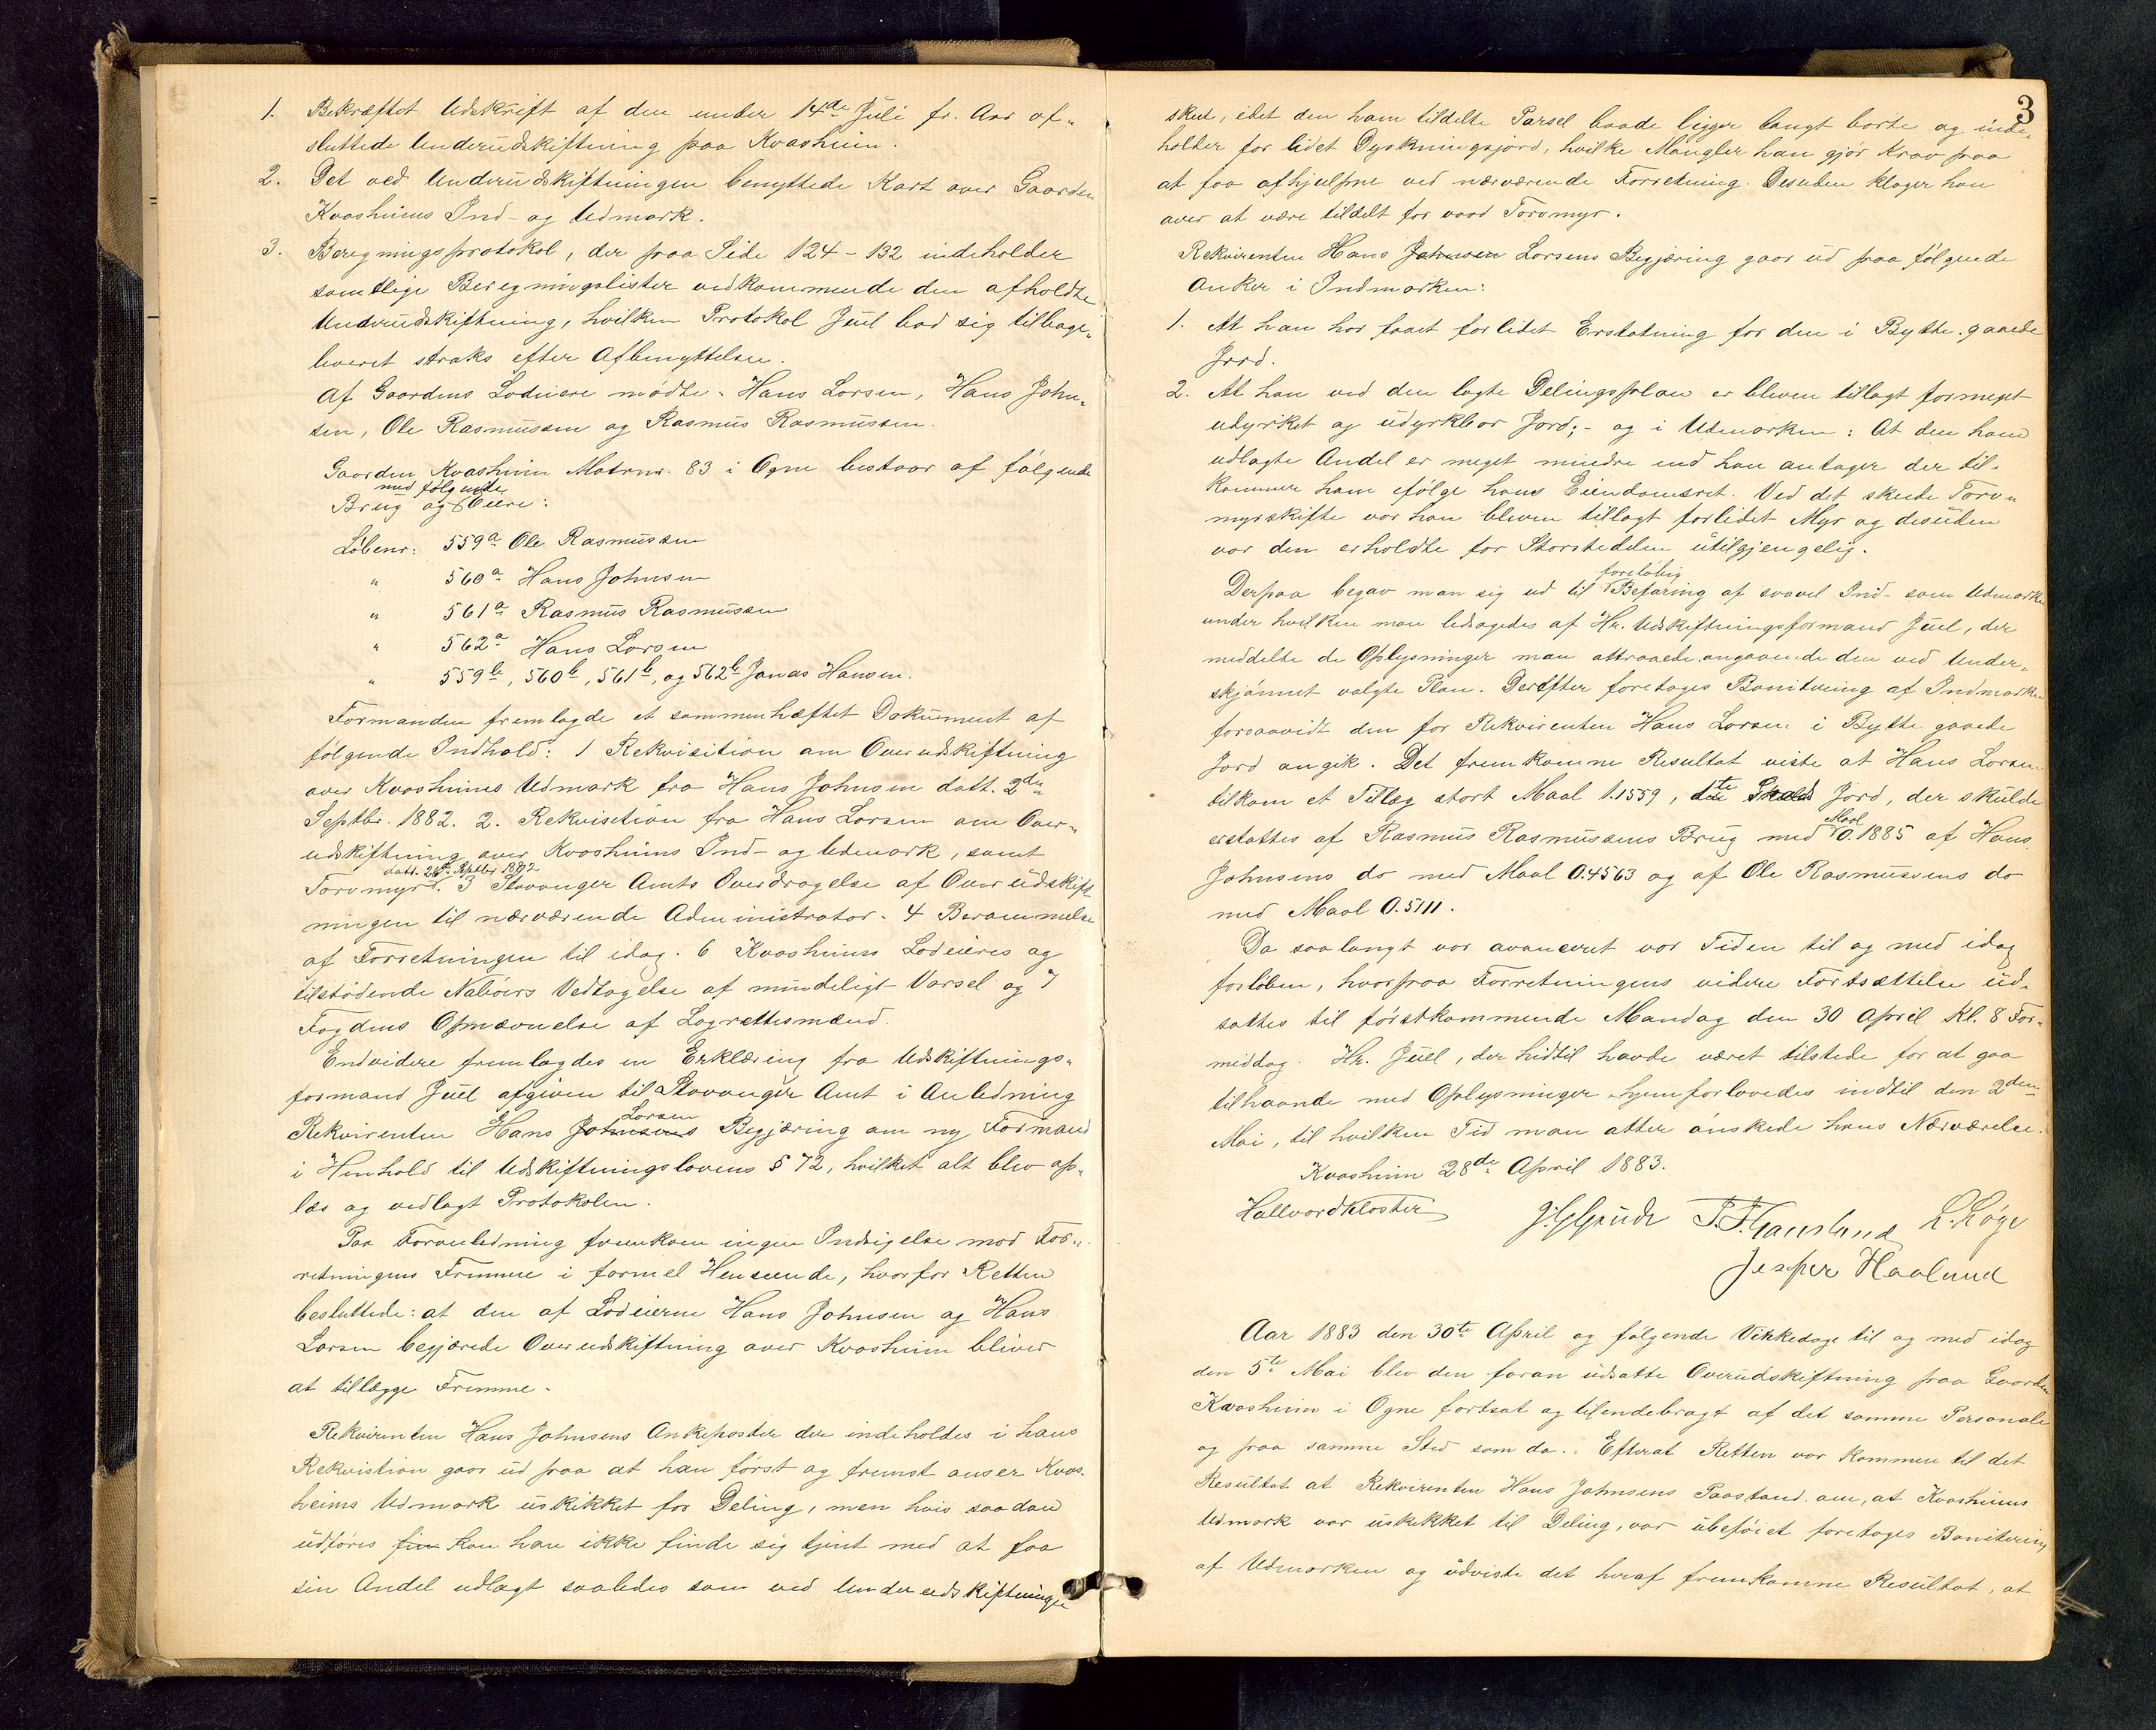 1. Bekræftet Udskrift af den under 14de Juli fr. Aar af-
sluttede Underudskiftning paa Kvasheim.
2. Det ved Underudskiftningen benyttede Kart over Gaarden
Kvasheims Ind- og Udmark.
3. Beregningsprotokol, der paa Side 124-132 indeholder
samtlige Beregningslister vedkommende den afholdte
Underudskiftning, hvilken Protokol Juel bad sig tilbage-
leveret straks efter Afbenyttelsen.
Af Gaardens Lodeiere mødte. Hans Larsen, Hans John-
sen, Ole Rasmussen og Rasmus Rasmussen.
Gaarden Kvasheim Matrnr. 83 i Ogne bestaar af følgende
med følgende
Brug og Eiere:
Løbenr: 559a Ole Rasmussen
" 560a Hans Johnsen
" 561a Rasmus Rasmussen
" 562a Hans Larsen
" 559b, 560b, 561b, og 562b Jonas Hansen.
Formanden fremlagde et sammenhæftet Dokument af
følgende Indhold: 1 Rekvisition om Overudskiftning
over Kvasheims Udmark fra Hans Johnsen datt. 2den
Septbr. 1882. 2. Rekvisition fra Hans Larsen om Over-
udskiftning over Kvasheims Ind- og Udmark, samt
datt. Septbr 1882
Torvmyr. 3 Stavanger Amts Overdragelse af Overudskift-
ningen til nærværende Administrator. 4 Berammelse
af Forretningen til idag. 6 Kvasheims Lodeieres og
tilstødende Naboers Vedtagelse af mindeligt Varsel og 7
Fogdens Opnævnelse af Lagrettesmænd.
Endvidere fremlagdes en Erklæring fra Udskiftnings-
formand Juel afgiven til Stavanger Amt i Anledning
Larsen
Rekvirenten Hans Johnsens Begjæring om ny Formand
i Henhold til Udskiftningslovens § 72, hvilket alt blev op-
læs og vedlagt Protokolen.
Paa Foranledning fremkom ingen Indsigelse mod For-
retningens Fremme i formel Henseende, hvorfor Retten
besluttede: at den af Lodeierne Hans Johnsen og Hans
Larsen begjærede Overudskiftning over Kvasheim bliver
at tillægge Fremme.
Rekvirenten Hans Johnsens Ankeposter der indeholdes i hans
Rekvistion gaar ud paa at han først og fremst anser Kvas-
heims Udmark uskikket for Deling, men hvis saadan
udføres fin kan han ikke finde sig tjent med at faa
sin Andel udlagt saaledes som ved Underudskiftningen
3
sked, idet den ham tildelte Parsel baade ligger langt borte og inde-
holder for lidet Dyrkningsjord, hvilke Mangler han gjør Krav paa
at faa afhjulpne ved nærværende Forretning. Desuden klager han
over at være tildelt for vaad Torvmyr.
Rekvirenten Hans Johnsen Larsens Begjæring gaar ud paa følgende
Anker i Indmarken:
1. At han har faaet forlidet Erstatning for den i Bytte gaaede
Jord.
2. At han ved den lagte Delingsplan er bleven tillagt formeget
udyrket og udyrkbar Jord; - og i Udmarken: At den ham
udlagte Andel er meget mindre end han antager der til-
kommer ham ifølge hans Eiendomsret. Ved det skeede Torv-
myrskifte var han bleven tillagt forlidet Myr og desuden
var den erholdte for Størstedelen utilgjengelig.
foreløbig
Derpaa begav man sig ud til Befaring af saavel Ind- som Udmarken
under hvilken man ledsagedes af Hr. Udskiftningsformand Juel, der
meddelte de Oplysninger man attraaede angaaende den ved Under-
skjønnet valgte Plan. Derefter foretoges Bonitering af Indmarken
forsaavidt den for Rekvirenten Hans Larsen i Bytte gaaede
Jord angik. Det fremkomne Resultat viste at Hans Larsen
tilkom et Tillæg stort Maal 1.1559, Jord, der skulde
Maal
erstattes af Rasmus Rasmussens Brug med 0.1885 af Hans
Johnsens do med Maal 0.4563 og af Ole Rasmussens do
med Maal 0.5111.
Da saalangt var avanceret var Tiden til og med idag
forløben, hvorpaa Forretningens videre Fortsættelse ud-
sattes til førstkommende Mandag den 30 April Kl. 8 For-
middag. Hr. Juel, der hidtil havde været tilstede for at gaa
tilhaande med Oplysninger hjemforlovedes indtil den 2den
Mai, til hvilken Tid man atter ønskede hans Nærværelse.
Kvasheim 28de April 1883.
Hallvard Kloster J. G. Grude L. Røge
Jesper Haaland
Aar 1883 den 30te April og følgende Virkedage til og med idag
den 5te Mai blev den foran udsatte Overudskiftning paa Gaarden
Kvasheim i Ogne fortsat og tilendebragt af det samme Personale
og paa samme Sted som da. Efterat Retten var kommen til det
Resultat at Rekvirenten Hans Johnsens Paastand om, at Kvasheims
Udmark var uskikket til Deling, var ubeføiet foretoges Bonitering
af Udmarken og udviste det heraf fremkomne Resultat, at